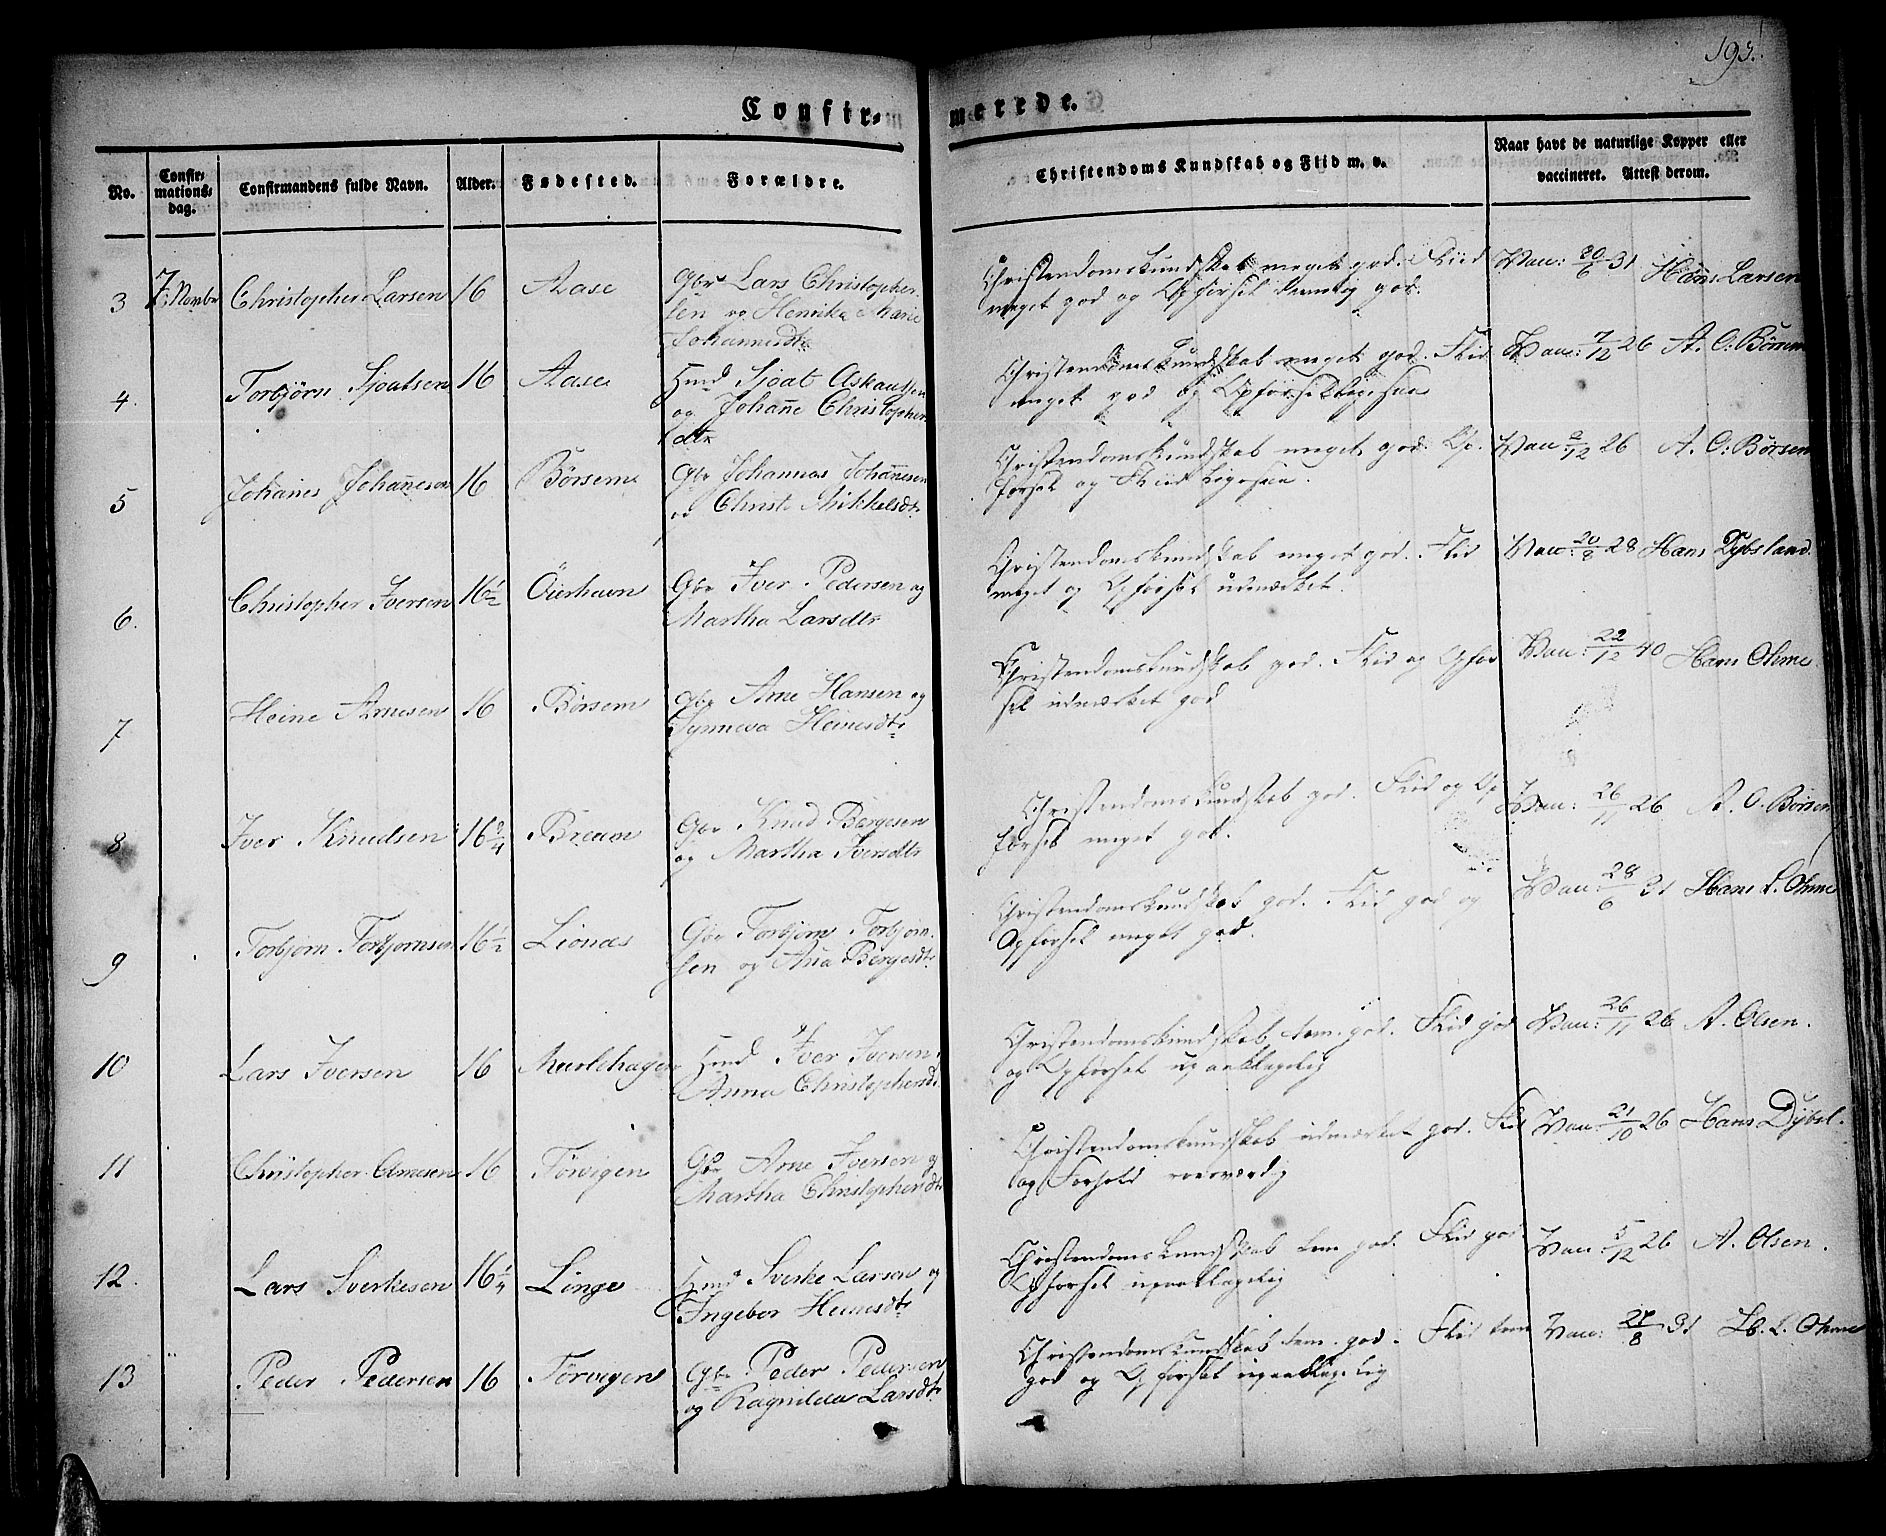 193.
Confir- merede.
No. Confirmations-dag. Confirmandens fulde Navn. Alder. Fødested. Forældre. Christendoms Kundskab og Flid m. v. Naar havt de naturlige Kopper eller vaccineret. Attest derom.
3 7. Novbr Christopher Larsen 16 Aase Gbr Lars Christopher-
sen og Henrika Marie
Johannesdtr
Christendomskundskab meget god. Fliid
meget god og Opførsel god.
Vac: 30/6 31 Hans Larsen
4. Torbjörn Sjoatsen 16 Aase Hmd Sjoat
og Johañe Christopher
dtr
Christendomskundskab meget god. Flid
meget god og Opførsel ligesaa
Vac: 7/12 26 A. O: Börsem
5 Johanes Johañeson 16 Börsem Gbr Johannas Johañesen
Christi Mikkelsdtr
Christendomskundskab meget god. Op-
førsel og Fliid ligesaa.
Vac 26 A. O: Börsem
6. Christopher Iversen 16½ Öierhavn Gbr Iver Pedersen og
Martha Larsdtr
Christendomskundskab meget god. Flid
meget og Opførsel udmærket.
Vac: 20/8 28 Hans Dybsland.
7 Heine Arnesen 16 Börsem Gbr Arne Hansen og
Synneva Heinesdtr
Christendomskundskab god. Flid og Opfør
sel udmærket god
Vac: 22/12 40 Hans Ohme
8 Iver Knudsen 16¾ Gbr Knud Bergesen
og Martha Iversdtr
Christendomskundskab god. Flid og Op-
førsel meget god.
Vac: 26/11 26 A. O. Börsem
9 Torbjorn Torbjornsen 16½ Lionæs Gbr Torbjorn Torbjorn-
sen og Aña Bergesdtr
Christendomskundskab god. Flid god og
Opførsel meget god.
Vac: 28/6 31 Hans L. Ohme
10 Lars Iversen 16 Hmd Iver Iversen
Anna Christophersdtr
Christendomskundskab tem. god. Flid god
og Opførsel upaaklagelig
Vac: 26/11 26 A. Olsen.
11 Christopher Arnesen 16 Törvigen Gbr Arne Iversen og
Martha Christophersdtr
Christendomskundskab udmærket god. Flid
og Forhold roesværdig
Vac: 21/10 26 Hans Dybsl.
12 Lars Sverkesen 16¼ Linge Hmd Sverke Larsen og
Ingebor Heinesdtr
Christendomskundskab tem god. Flid god
Opførsel upaaklagelig
Vac 5/12 26 A. Olsen.
13 Peder Pedersen 16 Törvigen Gbr Peder Pedersen
og Ragnilda Larsdtr
Christendomskundskab tem. god. Flid tem
god og Opførsel upaaklagelig
Vac: 31 H. L. Ohme